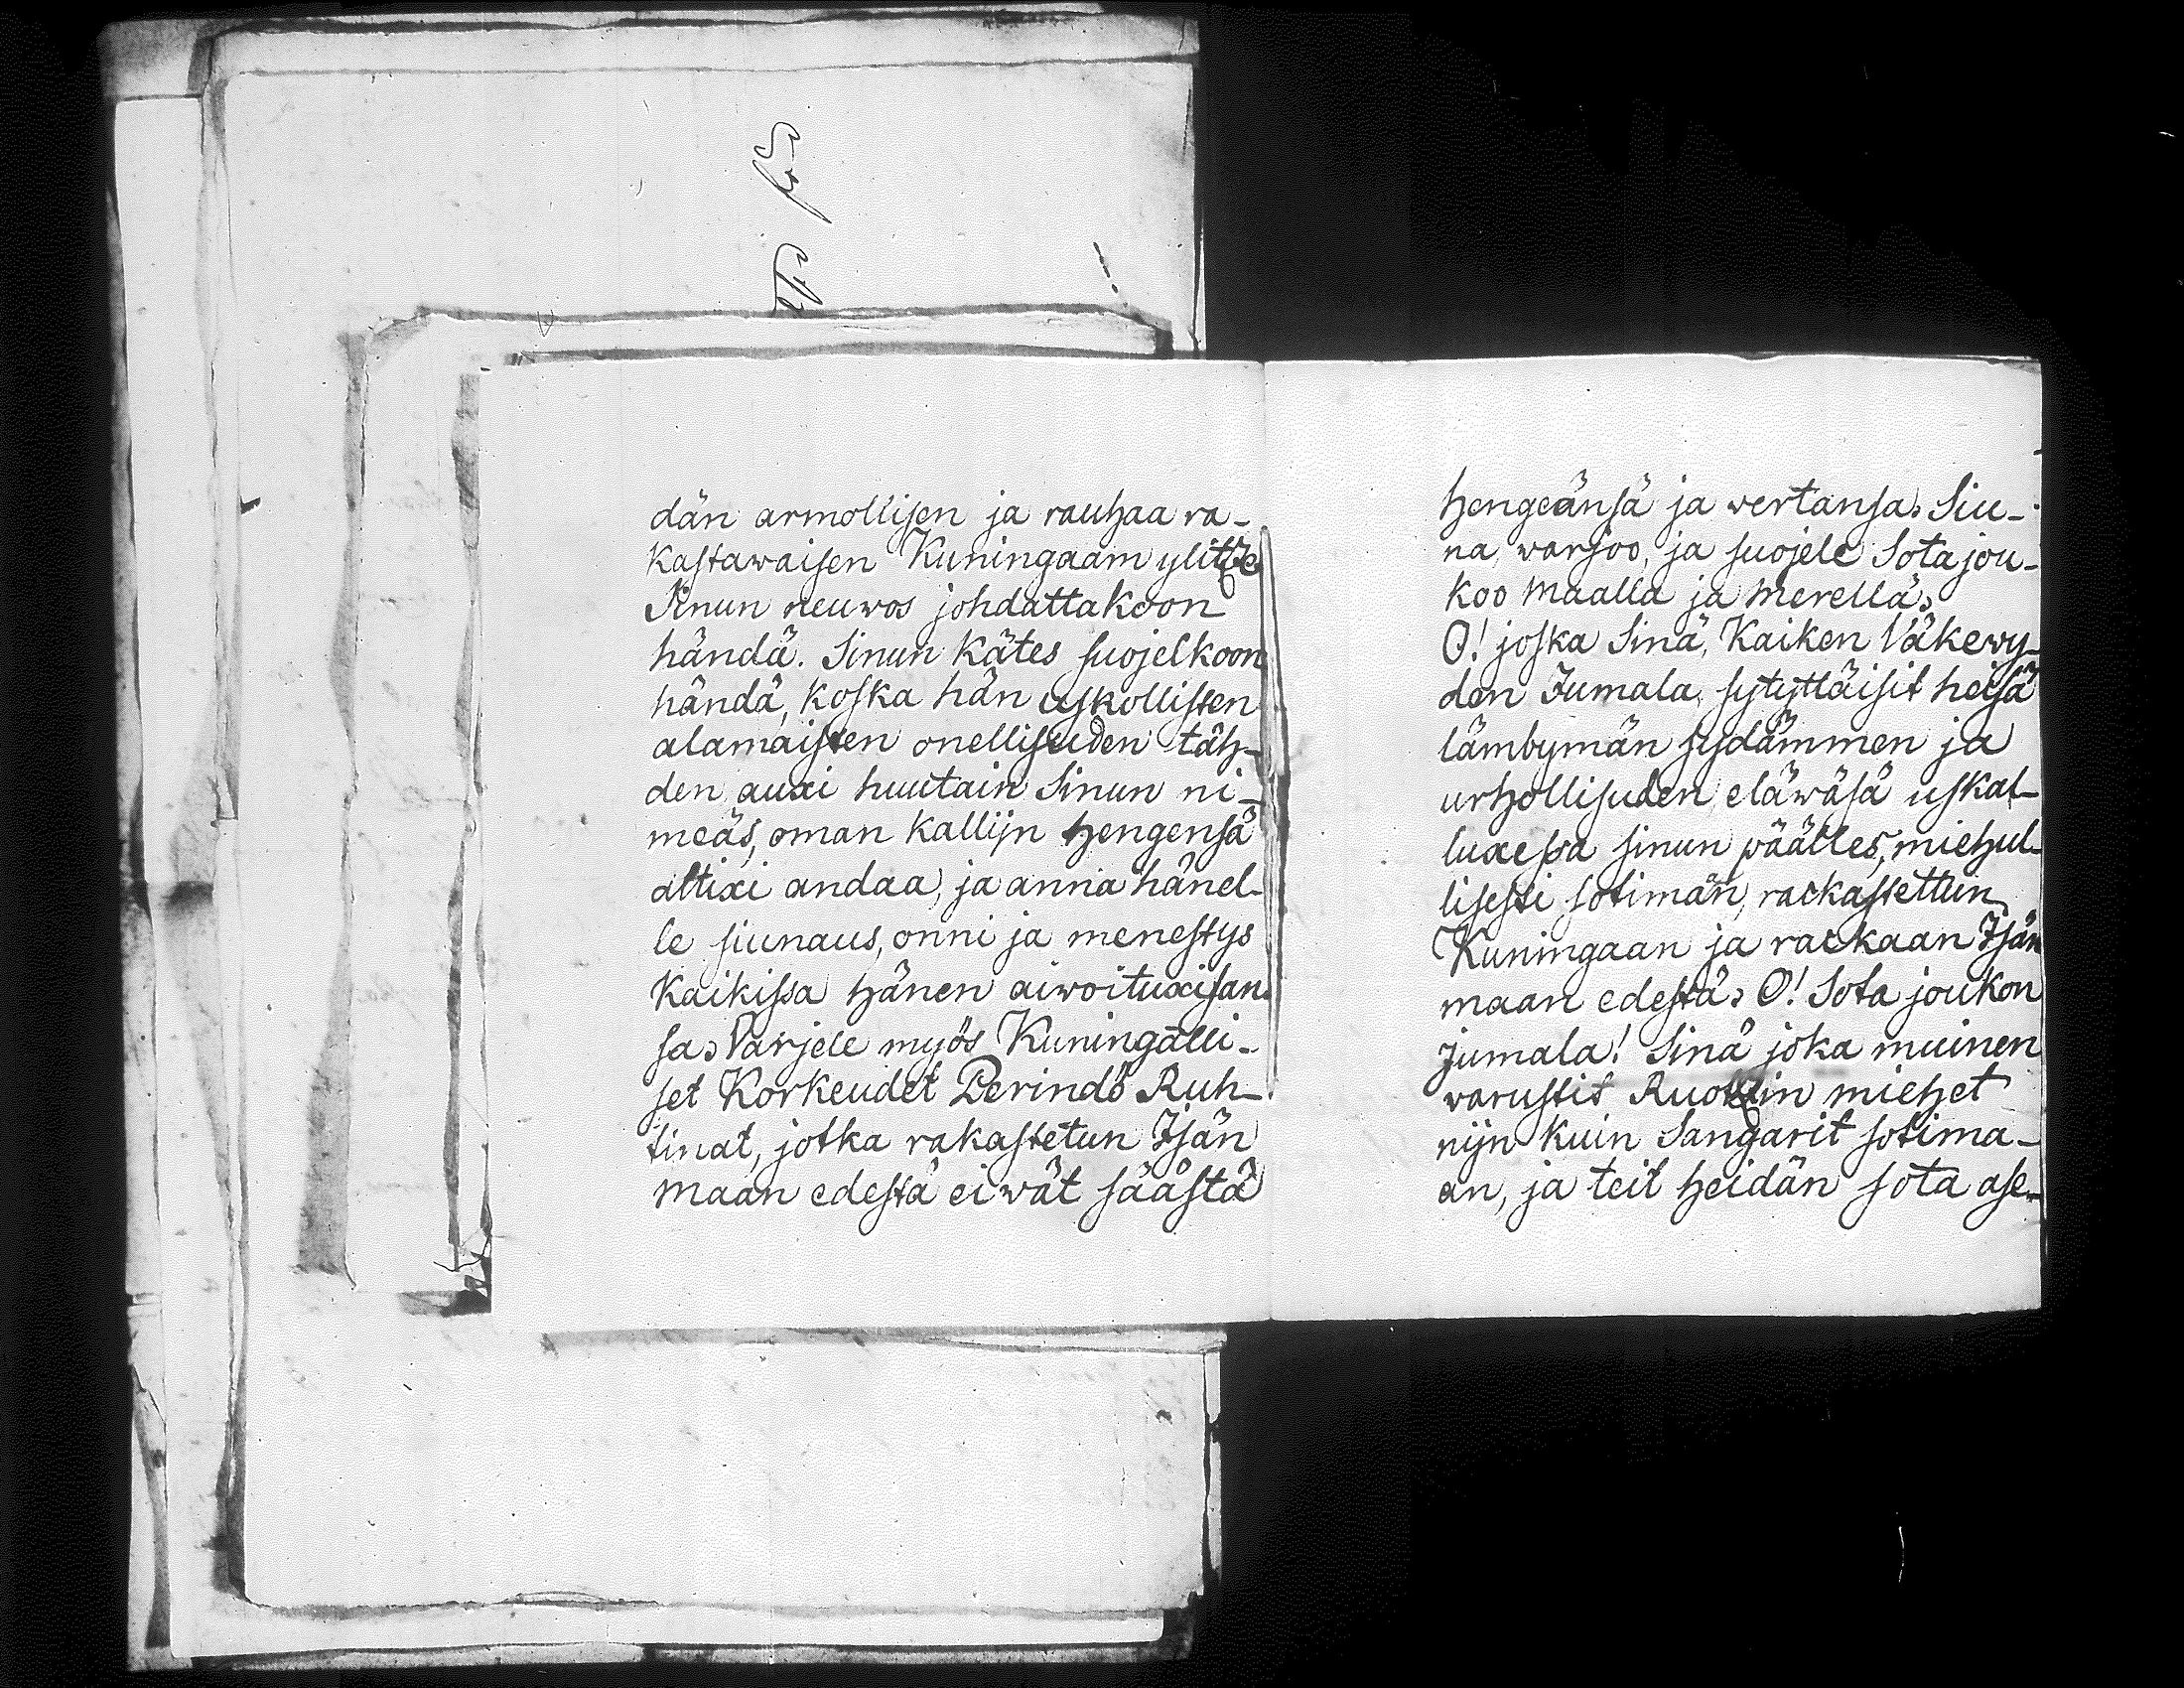 dän armollisen ja rauhaa ra-
kastawaisen Kuningaam ylitze
Sinun neuwos johdattakoon
händä. Sinun kätes suojelkoon
händä, koska hän uskollisten
alamaisten onellisuden täh-
den auxi huutain Sinun ni-
meäs, oman kallijn Hengensä
altixi andaa, ja anna hänel-
le siunaus, onni ja menestys
Kaikissa Hänen aiwoituxisan-
sa, Varjele myös Kuningalli-
set Korkeudet Perindö Ruh-
tinat, jotka rakastetun Isän
maan edestä eiwät säästä
Hengeänsä ja wertansa, Siu-
na, warjoo, ja suojele Sota jou-
koo Maalla ja Merellä,
O! joska Sinä, Kaiken Väkewy-
den Jumala, sytyttäisit heisä
lämbymän sydämmen ja
urhollisuden eläwäsä uskal-
luxessa sinun päälles, miehul-
lisesti sotimän, rackastettun
Kuningaan ja rackaan Isän
maan edestä, O! Sota joukon
Jumala! Sinä joka muinen
varustit Ruotzin miehet
nijn kuin Sangarit sotima-
an, ja teit heidän sota ase-